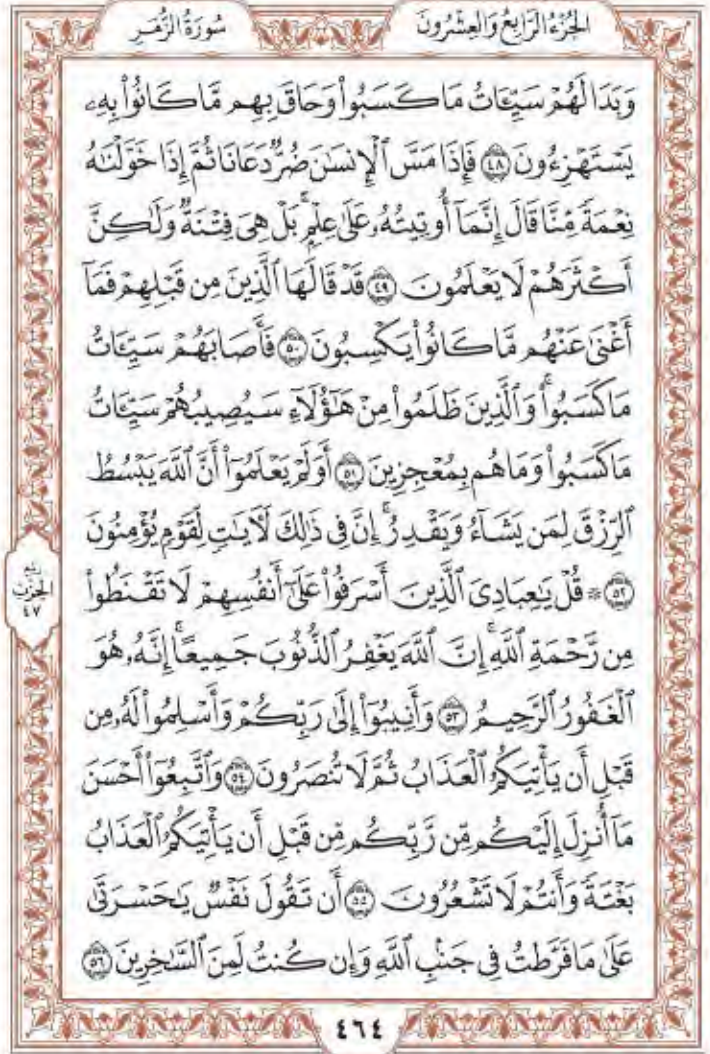 الجُزْءُ الرَّابِعُ وَالعِشْرُونَ
سُورَةُ الزُّمَرِ
وَبَدَا لَهُمْ سَيِّـَٔاتُ مَا كَسَبُوا۟ وَحَاقَ بِهِم مَّا كَانُوا۟ بِهِۦ
يَسْتَهْزِءُونَ ٤٨ فَإِذَا مَسَّ ٱلْإِنسَـٰنَ ضُرٌّ دَعَانَا ثُمَّ إِذَا خَوَّلْنَـٰهُ
نِعْمَةً مِّنَّا قَالَ إِنَّمَآ أُوتِيتُهُۥ عَلَىٰ عِلْمٍۭ ۚ بَلْ هِىَ فِتْنَةٌ وَلَـٰكِنَّ
أَكْثَرَهُمْ لَا يَعْلَمُونَ ٤٩ قَدْ قَالَهَا ٱلَّذِينَ مِن قَبْلِهِمْ فَمَآ
أَغْنَىٰ عَنْهُم مَّا كَانُوا۟ يَكْسِبُونَ ٥٠ فَأَصَابَهُمْ سَيِّـَٔاتُ
مَا كَسَبُوا۟ ۚ وَٱلَّذِينَ ظَلَمُوا۟ مِنْ هَـٰٓؤُلَآءِ سَيُصِيبُهُمْ سَيِّـَٔاتُ
مَا كَسَبُوا۟ وَمَا هُم بِمُعْجِزِينَ ٥١ أَوَلَمْ يَعْلَمُوٓا۟ أَنَّ ٱللَّهَ يَبْسُطُ
ٱلرِّزْقَ لِمَن يَشَآءُ وَيَقْدِرُ ۚ إِنَّ فِى ذَٰلِكَ لَـَٔايَـٰتٍ لِّقَوْمٍ يُؤْمِنُونَ
٥٢ ۞ قُلْ يَـٰعِبَادِىَ ٱلَّذِينَ أَسْرَفُوا۟ عَلَىٰٓ أَنفُسِهِمْ لَا تَقْنَطُوا۟
مِن رَّحْمَةِ ٱللَّهِ ۚ إِنَّ ٱللَّهَ يَغْفِرُ ٱلذُّنُوبَ جَمِيعًا ۚ إِنَّهُۥ هُوَ
ٱلْغَفُورُ ٱلرَّحِيمُ ٥٣ وَأَنِيبُوٓا۟ إِلَىٰ رَبِّكُمْ وَأَسْلِمُوا۟ لَهُۥ مِن
قَبْلِ أَن يَأْتِيَكُمُ ٱلْعَذَابُ ثُمَّ لَا تُنصَرُونَ ٥٤ وَٱتَّبِعُوٓا۟ أَحْسَنَ
مَآ أُنزِلَ إِلَيْكُم مِّن رَّبِّكُم مِّن قَبْلِ أَن يَأْتِيَكُمُ ٱلْعَذَابُ
بَغْتَةً وَأَنتُمْ لَا تَشْعُرُونَ ٥٥ أَن تَقُولَ نَفْسٌ يَـٰحَسْرَتَىٰ
عَلَىٰ مَا فَرَّطتُ فِى جَنۢبِ ٱللَّهِ وَإِن كُنتُ لَمِنَ ٱلسَّـٰخِرِينَ ٥٦
ربع
الحزب
٤٧
٤٦٤